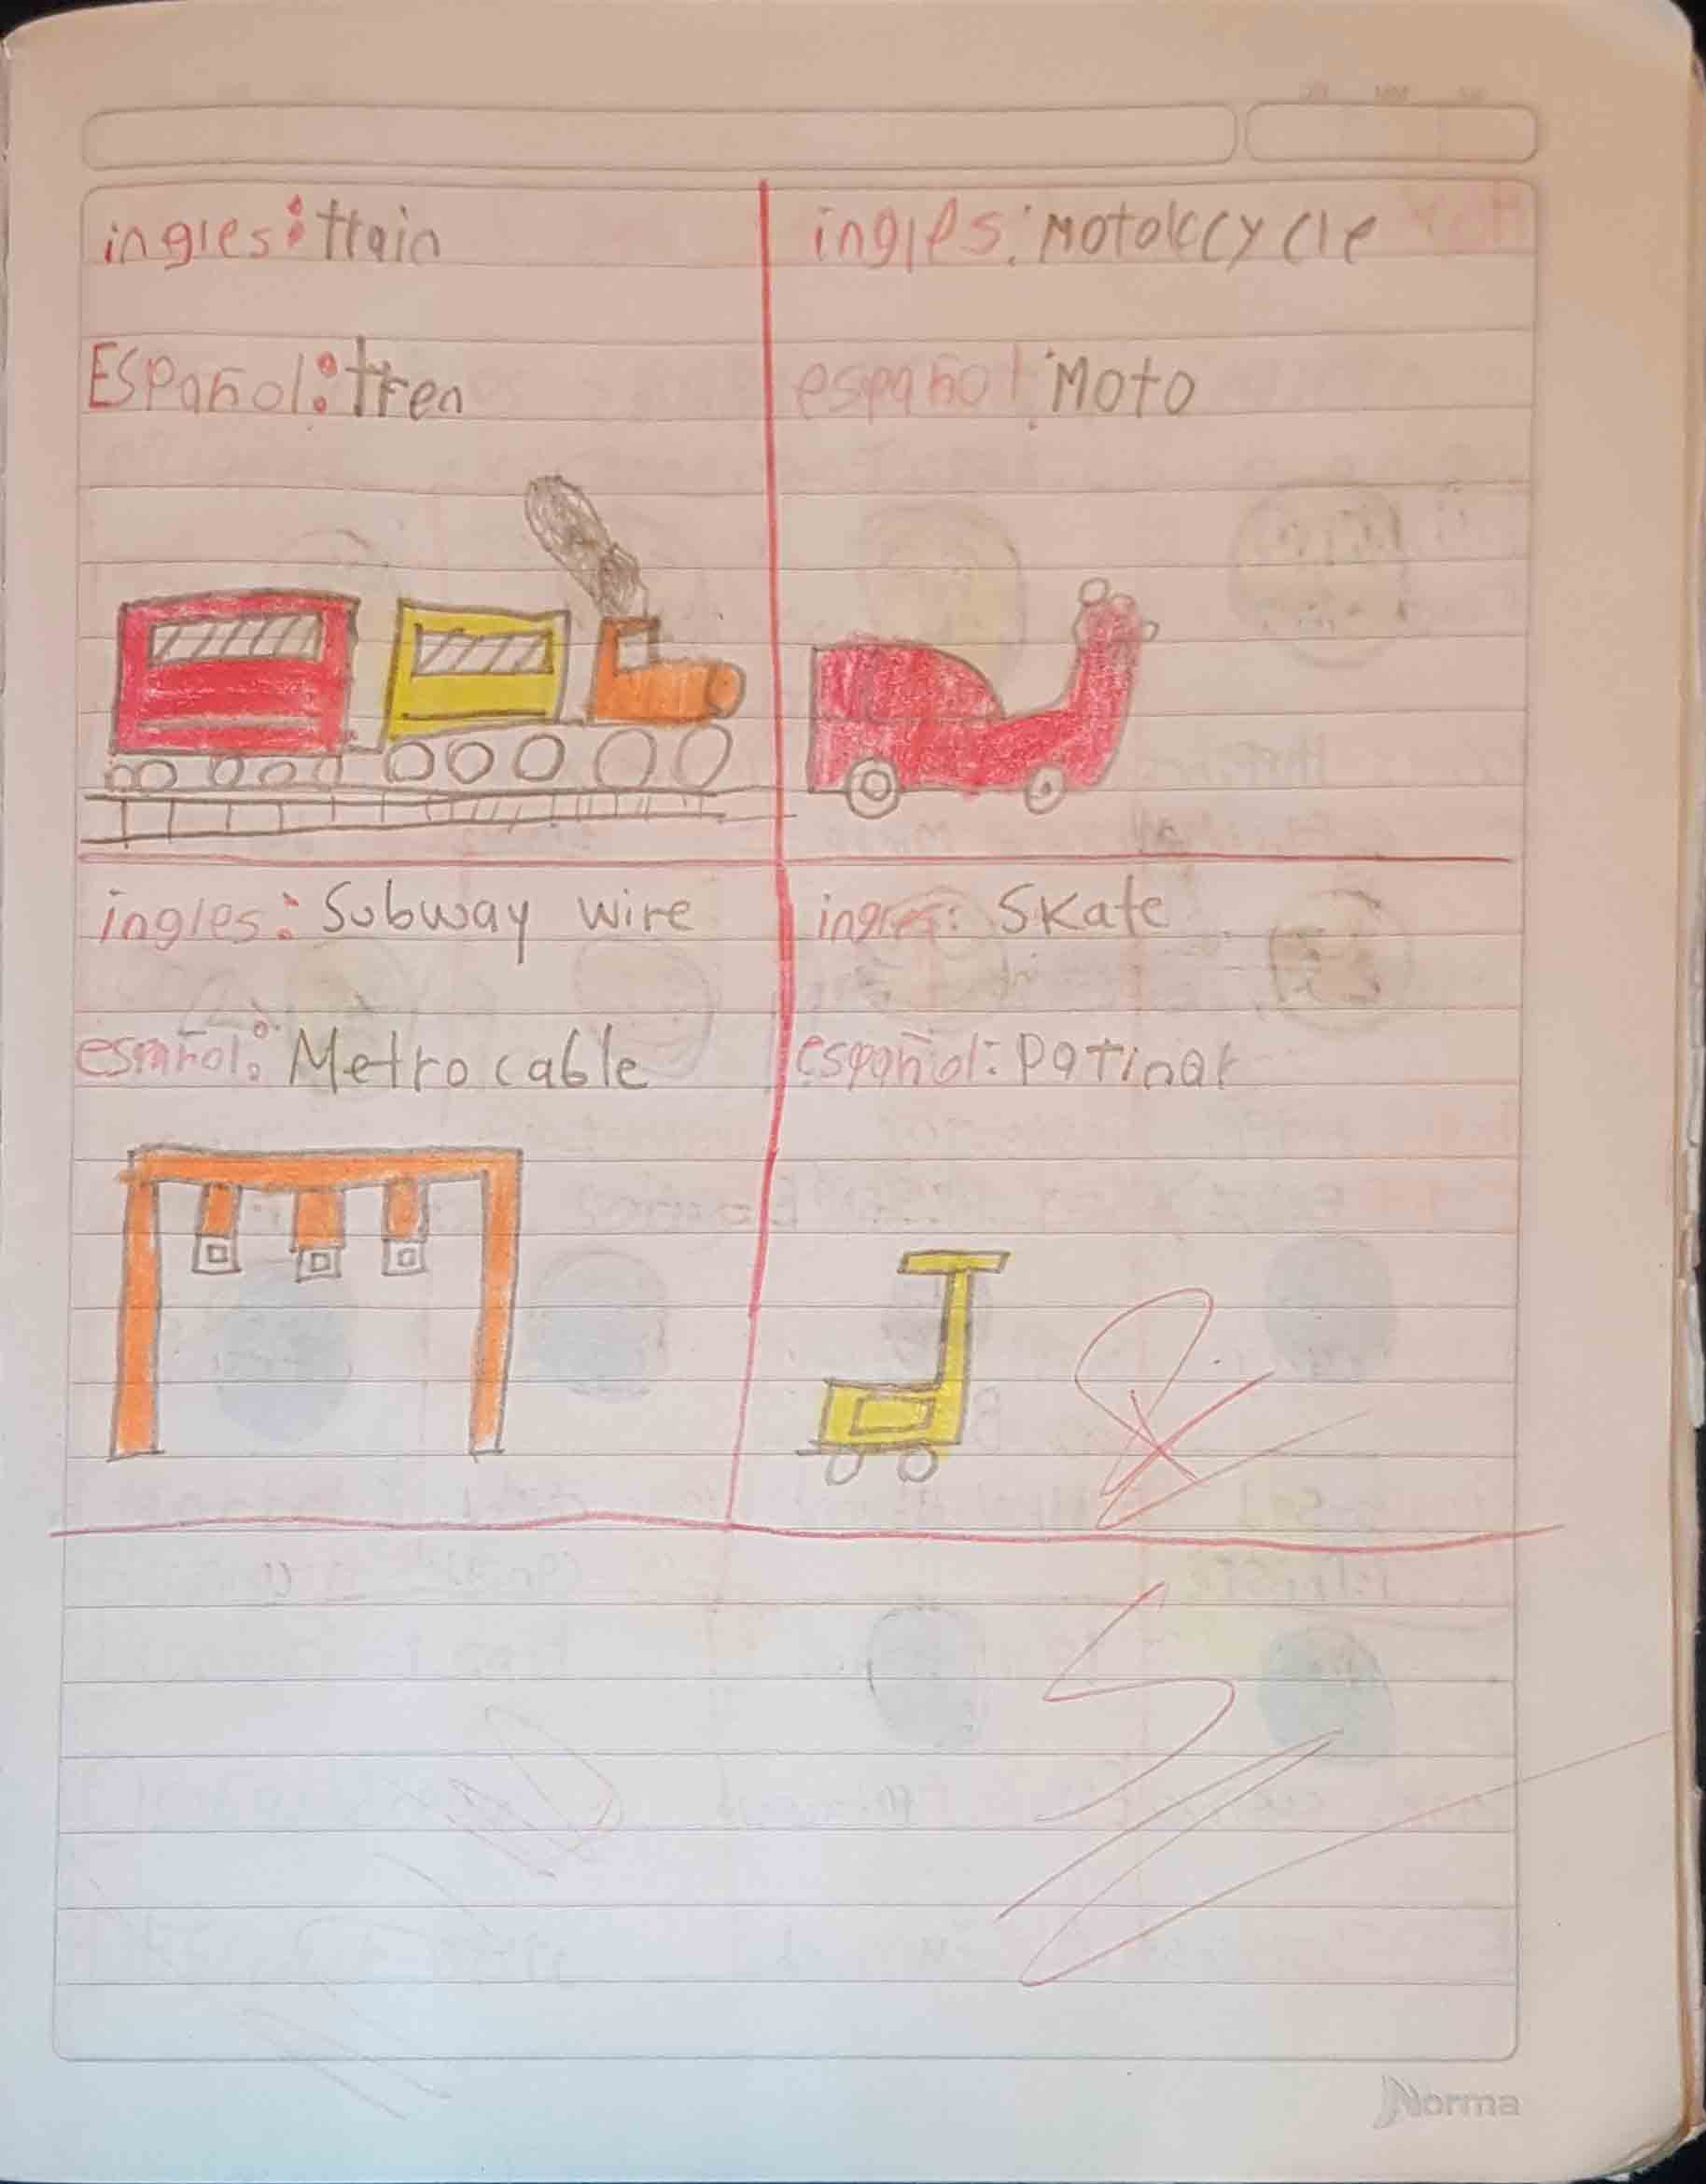 ingles: train
Español: tren
ingles: Motorccycle
español: Moto
ingles: Subway wire
español: Metro cable
ingles: Skate
español: Patinar
Norma